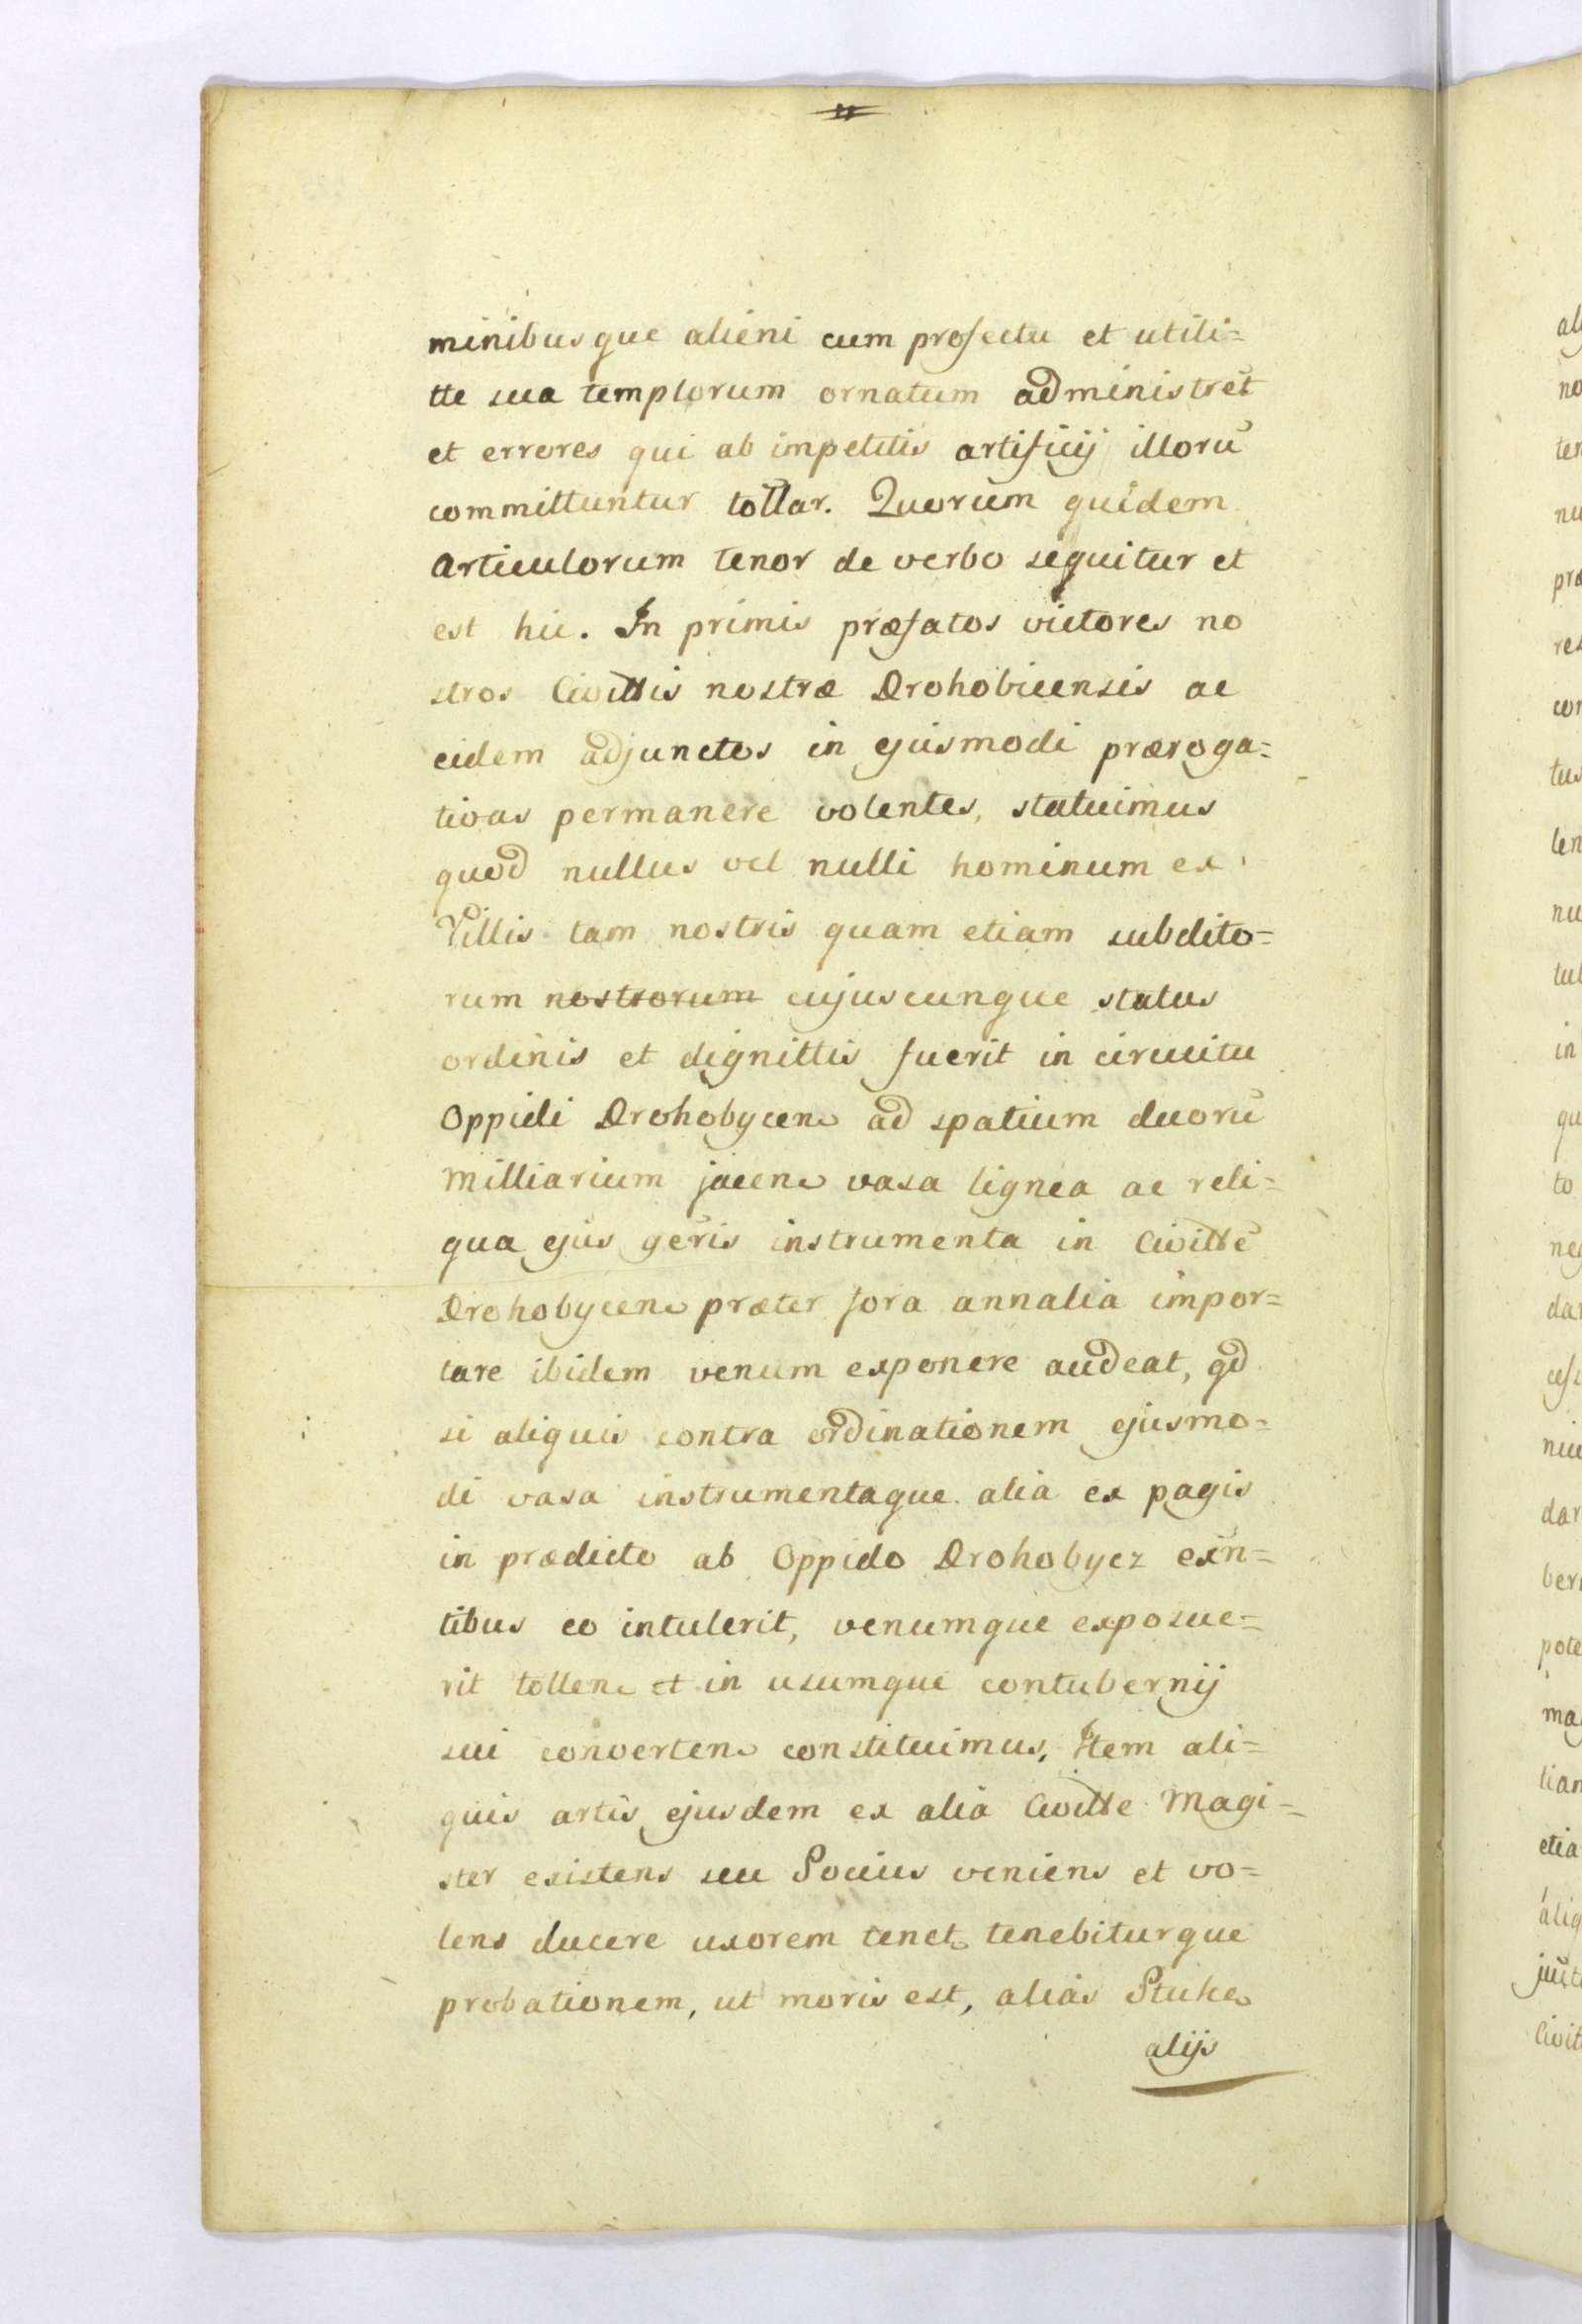 minibusque alieni cum profectu et utili=
tte sua templorum ornatum administret
et errores qui ab impetitis artificij illorū
committuntur tollar. Quorum quidem
articulorum tenor de verbo sequitur et
est hic. In primis præfatos victores no
stros Civittis nostræ Drohobicensis ac
eidem adjunctos in ejusmodi præroga=
tivas permanere volentes, statuimus
quod nullus vel nulli hominum ex
Villis tam nostris quam etiam subdito=
rum nostrorum cujuscunque status
ordinis et dignittis fuerit in circuitu
Oppidi Drohobycen ad spatium duorū
Milliarium jacen vasa lignea ac reli=
qua ejus gēris instrumenta in Civittē
Drohobycen præter fora annalia impor=
tare ibidem venum exponere audeat, qd
si aliquis contra ordinationem ejusmo=
di vasa instrumentaque alia ex pagis
in prædicto ab Oppido Drohobycz exn̄=
tibus eo intulerit, venumque exposue=
rit tollen et in usumque contubernij
sui converten constituimus, Item ali=
quis artis ejusdem ex alia Civitte Magi=
ster existens seu Socius veniens et vo=
lens ducere uxorem tenet tenebiturque
probationem, ut moris est, alias Stuke
alijs